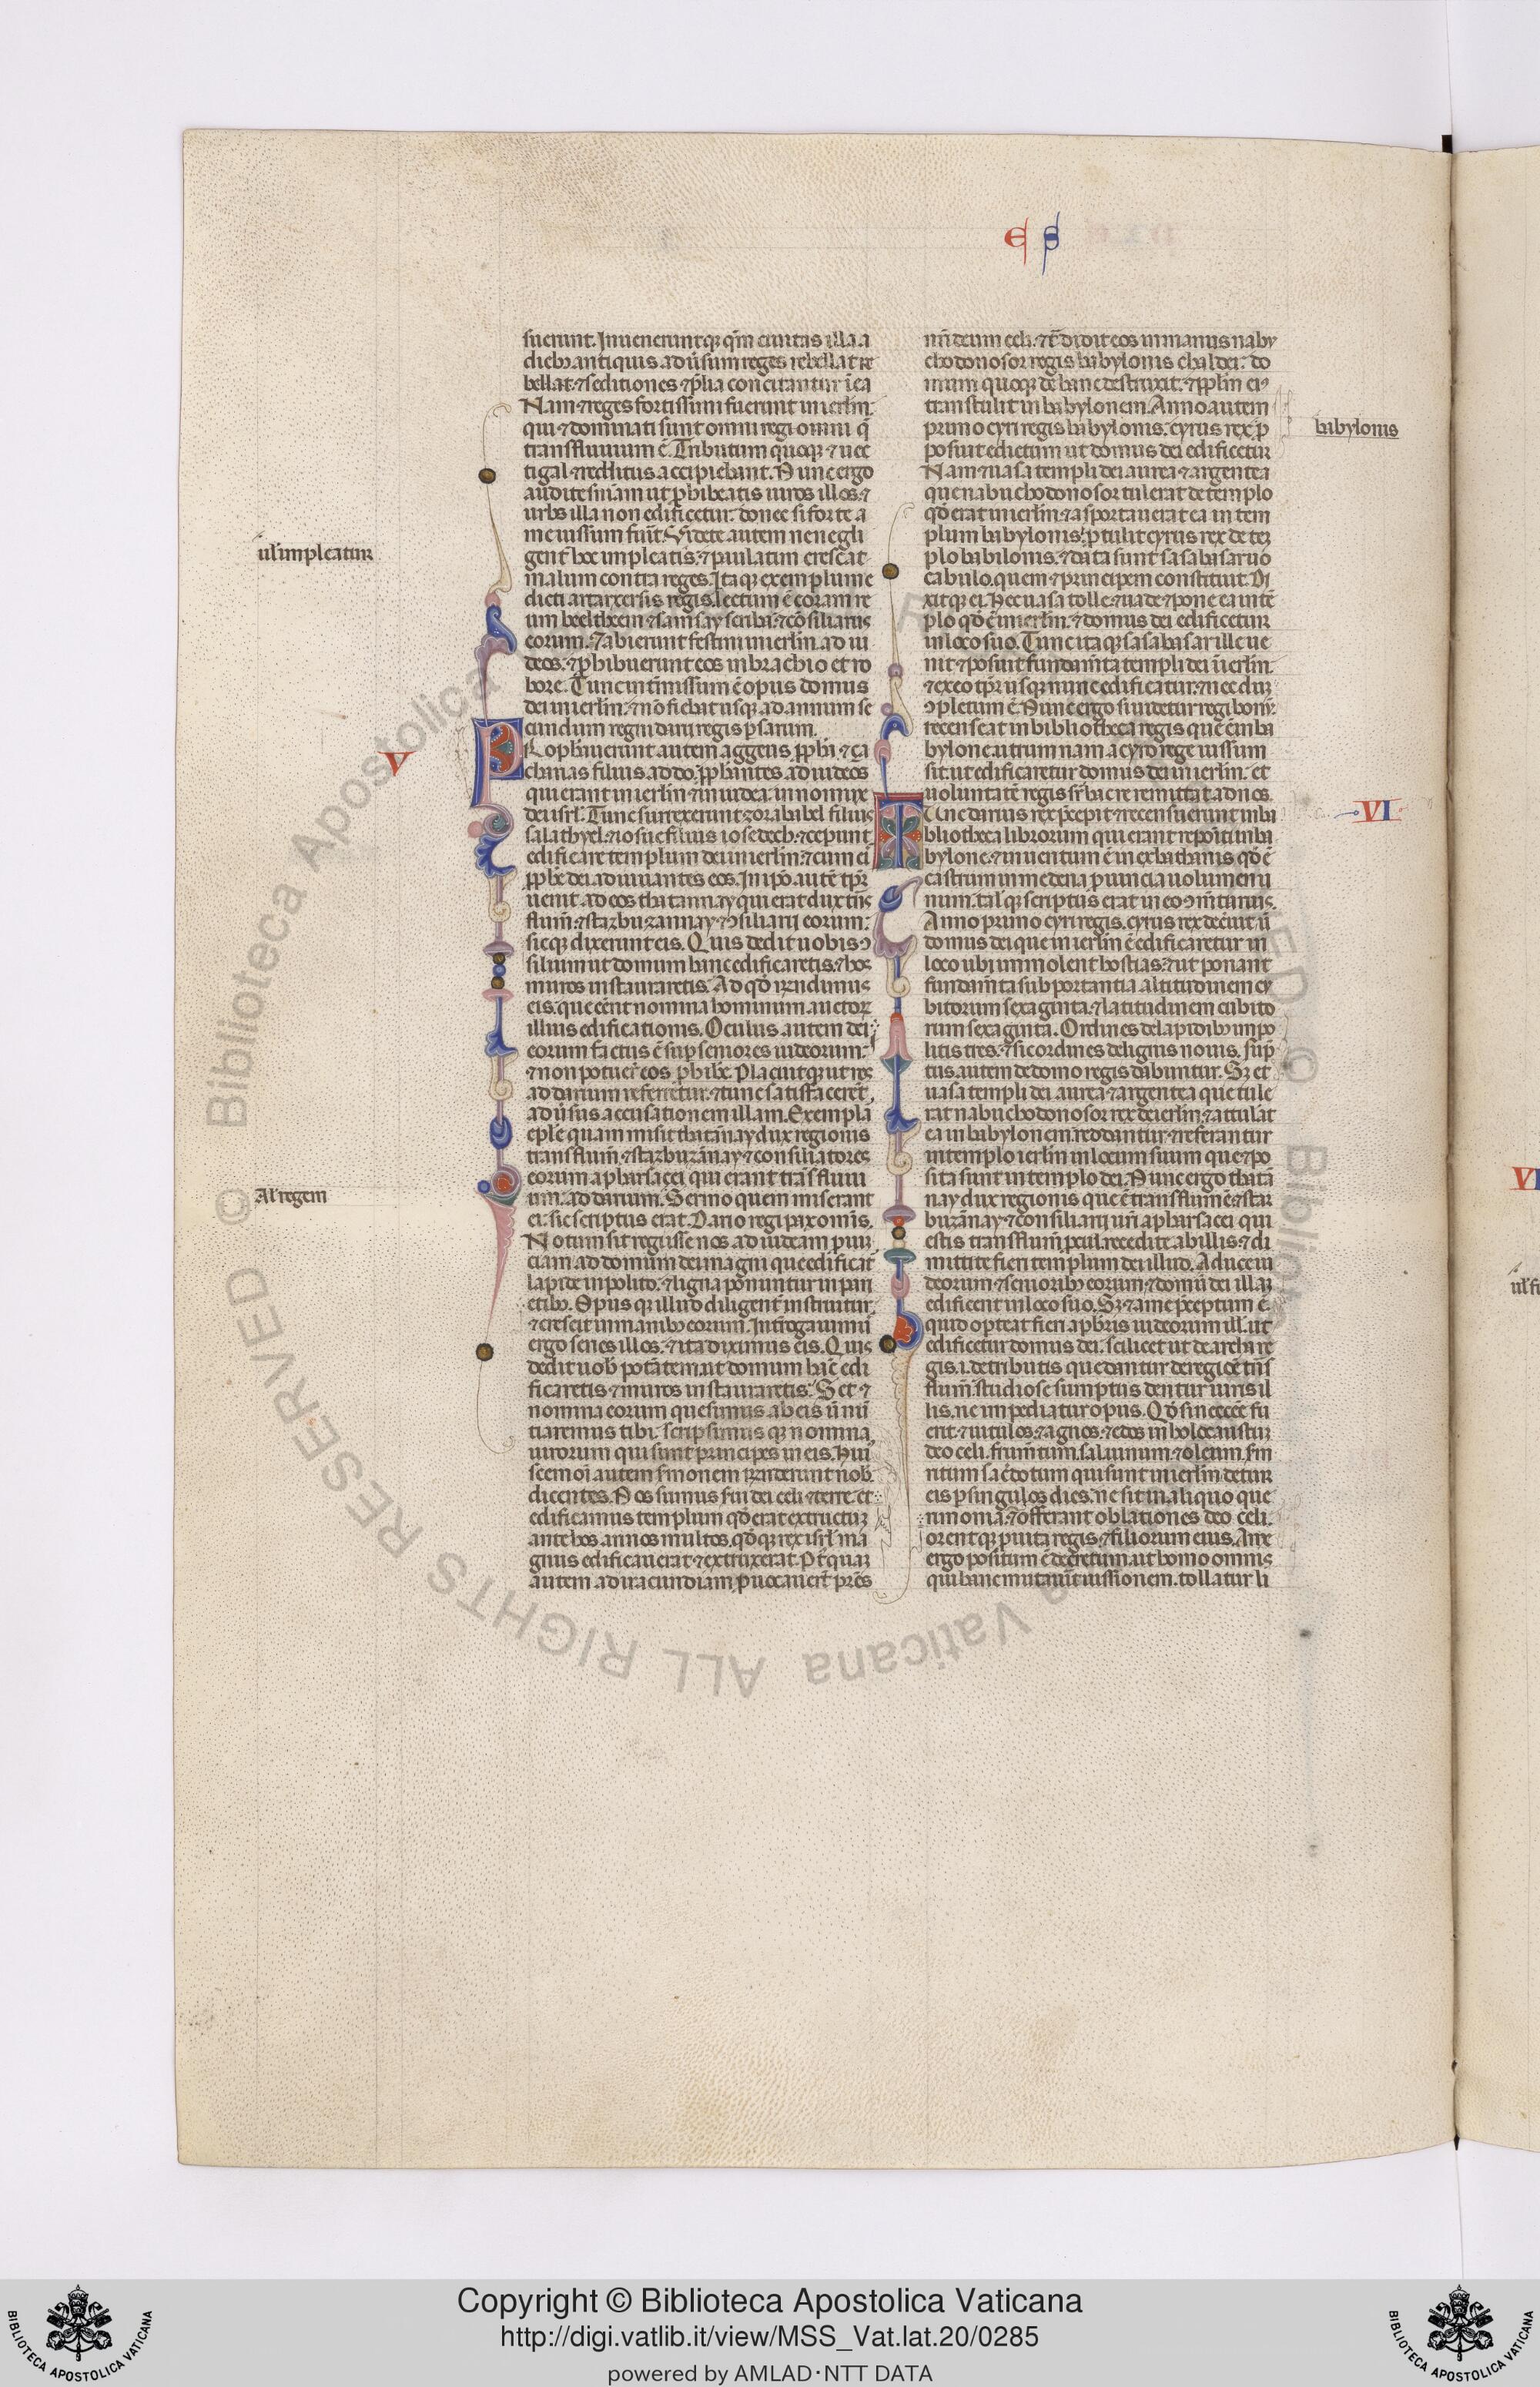 E S
suerunt. Inueneruntq; qm̄ ciuitas illa a
dieb; antiquis aduūsum reges rebellat re
bellat: ⁊ seditiones ⁊ p̄lia concitantur ī ea
Nam ⁊ reges fortissimi fuerunt in ierl̄m.
qui ⁊ dominati sunt omni regi omni q̄
trans fluuium ē. Tributum quoq; ⁊ uec
tigal ⁊ redditus accipiebant. Nunc ergo
audite sn̄iam ut ꝓhibeatis uiros illos: ⁊
urbs illa non edificetur: donec si forte a
me iussum fuīt. Videte autem ne negli
gent̄ hoc impleatis: ⁊ paulatim crescat
malum contra reges. Itaq; exemplum e
dicti artarxersis regis lectum ē coram re
um beeltheem ⁊ samsay scriba: ⁊ cōsiliariis
eorum. ⁊ abierunt festini in ierl̄m ad iu
deos: ⁊ ꝓhibuerunt eos in brachio et ro
bore. Tunc int̄missum ē opus domus
dei in ierl̄m: ⁊ nō fiebat usq; ad annum se
cundum regni darii regis ꝑsarum.
V
PRophāuerunt autem aggeus ꝓph̄a ⁊ ça
charias filius addo: ꝓph̄antes ad iudeos
qui erant in ierl̄m ⁊ in iudea: in nomīe
dei isr̄l. Tunc surrexerunt zorababel filius
salathyel: ⁊ iosue filius iosedech: ⁊ cepunt
edificare templum dei in ierl̄m: ⁊ cum eī
ꝓph̄e dei adiuuantes eos. In ip̄o aut̄ē tp̄r
uenit ad eos thatannay qui erat dux trn̄s
flum̄: ⁊ starbuzannay: ⁊ ꝯsiliarij eorum:
sicq; dixerunt eis. Quis dedit uobis ꝯ
silium ut domum hanc edificaretis: ⁊ hos
muros instauraretis. Ad qd̄ rn̄dimus
eis: que eēnt nomina hominum auctoꝝ
illius edificationis. Oculus autem dei
eorum factus ē suꝑ seniores iudeorum:
⁊ non potuer̄ eos ꝓhib̄e. Placuitq; ut res
ad darium referretur: ⁊ tunc satisfaceren̄t
aduūsus accusationem illam. Exemplar
epl̄e quam misit thatānay dux regionis
trans flum̄: ⁊ starbuzānay ⁊ consiliatores
eorum apharsacei qui erant trās fluui
um: ad darium. Sermo quem miserant
ei: sic scriptus erat. Dario regi pax omīs.
Notum sit regi isse nos ad iudeam ꝓuī
ciam ad domum dei magni que edificat̄
lapide inpolito: ⁊ ligna ponuntur in pari
etib;. Opus q; illud diligent̄ instruitur
⁊ crescit in manib; eorum. Int̄rogauimꝰ
ergo senes illos: ⁊ ita diximus eis. Quis
dedit uob̄ potātem: ut domum hāc edi
ficaretis ⁊ muros instauraretis. Set ⁊
nomina eorum quesimus ab eis ū nū
tiaremus tibi. scripsimus q; nomina
uirorum qui sunt principes in eis. Huī
scemoī autem s̄monem rn̄derunt nob̄
dicentes. Nos sumus s̄ui dei celi ⁊ terre: et
edificamus templum qd̄ erat extructuꝫ
ante hos annos multos: qd̄q; rex isr̄l ma
gnus edificauerat ⁊ extruxerat. Pt̄quaꝫ
autem ad iracundiam ꝓuocauer̄t pr̄es
nr̄i deum celi: ⁊ t̄didit eos in manus naby
chodonosor regis babylonis chaldei: do
mum quoq; dē hanc destruxit: ⁊ ꝓplm̄ eiꝰ
transtulit in babylonem. Anno autem
primo cyri regis babylonis: cyrus rex ꝓ
posuit edictum ut domus dei edificetur
Nam ⁊ uasa templi dei aurea ⁊ argentea
que nabuchodonosor tulerat de templo
qd̄ erat in ierl̄m: ⁊ asportauerat ea in tem
plum babylonis: ꝓtulit cyrus rex de teꝫ
plo babilonis: ⁊ data sunt sasabasar uo
cabulo. quem ⁊ principem constituit. Di
xitq; ei. Hec uasa tolle: ⁊ uade ⁊ pone ea in tē
plo qd̄ ē in ierl̄m: ⁊ domus dei edificetur
in loco suo. Tunc itaq; sasabasar ille ue
nit ⁊ posuit fundam̄ta templi dei ī ierl̄m.
⁊ ex eo tp̄r usq; nunc edificatur: ⁊ nec duꝫ
ꝯpletum ē. Nunc ergo si uidetur regi bonū:
recenseat in bibliotheca regis que ē in ba
bylone: utrum nam a cyro rege iussum
sit: ut edificaretur domus dei in ierl̄m: et
uoluntatē regis sr̄ hac re remittat ad nos.
VI
TUnc darius rex p̄cepit: ⁊ recensuerunt in bi
bliotheca librorum qui erant repositi in ba
bylone: ⁊ inuentum ē in exbathanis qd̄ ē
castrum in medena ꝓuincia uolumen ū
num: talisq; scriptus erat in eo ꝯm̄tarius.
Anno primo cyri regis. cyrus rex dec̄uit ū
domus dei que in ierl̄m ē edificaretur in
loco ubi immolent hostias: ⁊ ut ponant
fundam̄ta subportantia altitudinem cu
bitorum sexaginta: ⁊ latitudinem cubito
rum sexaginta. Ordines de lapidib; inpo
litis tres: ⁊ sic ordines de lignis nouis. sūp
tus autem de domo regis dabuntur. Sꝫ et
uasa templi dei aurea ⁊ argentea que tule
rat nabuchodonosor rex de ierl̄m: ⁊ attulat̄
ea in babylonem reddantur: ⁊ referantur
in templo ierl̄m in locum suum que ⁊ po
sita sunt in templo dei. Nunc ergo thatā
nay dux regionis que ē trans flum̄ ⁊ star
buzānay: ⁊ consiliarij ur̄i apharsacei qui
estis trans flum̄: ꝓcul recedite ab illis: ⁊ di
mittite fieri templum dei illud. A duce iu
deorum ⁊ seniorib; eorum: ⁊ domū dei illaꝫ
edificent in loco suo. Sꝫ ⁊ a me p̄ceptum ē
quid oporteat fieri a pb̄ris iudeorum ill̄: ut
edificetur domus dei. scilicet ut de archa re
gis .i. de tributis que dantur de regiōē trn̄s
flum̄: studiose sumptus dentur uiris il
lis. ne impediatur opus. Qd̄ si necēē fu
erit: ⁊ uitulos ⁊ agnos: ⁊ edos in holocaustuꝫ
deo celi. frum̄tum. sal. uinum. ⁊ oleum. s̄m
ritum sac̄dotum qui sunt in ierl̄m detur
eis ꝑ singulos dies. ne sit in aliquo que
rimonia. ⁊ offerant oblationes deo celi.
orentq; ꝓ uita regis: ⁊ filiorum eius. A me
ergo positum ē decretum. ut homo omnis
qui hanc mutauīt iussionem. tollatur li
ul̄ impleatur
Al̄ regem
babylonis
VI
Copyright © Biblioteca Apostolica Vaticana
http://digi.vatlib.it/view/MSS_Vat.lat.20/0285
powered by AMLAD·NTT DATA
BIBLIOTECA APOSTOLICA VATICANA
BIBLIOTECA APOSTOLICA VATICANA
© Biblioteca Apostolica Vaticana ALL RIGHTS RESERVED